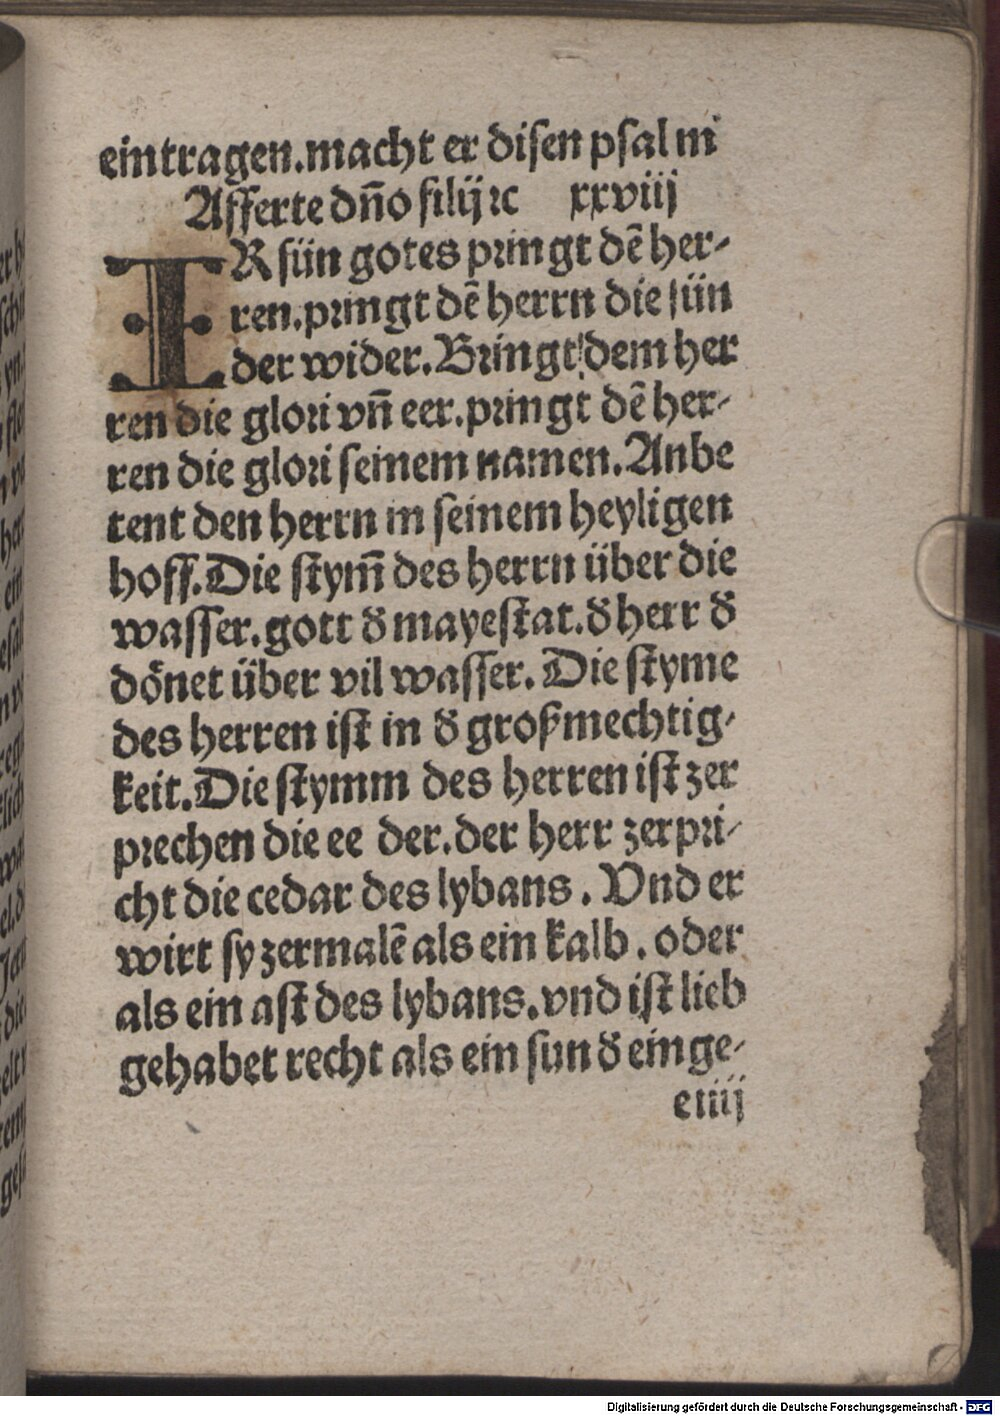 eintragen.macht er disen psal m
Afferte dño filij ⁊c xxviij
IR sün gotes pringt dē her⸗
ren.pringt dē herrn die sün
der wider.Bringt dem her
ren die glori vñ eer.pringt dē her⸗
ren die glori seinem namen.Anbe
tent den herrn in seinem heyligen
hoff.Die stym̄ des herrn über die
wasser.gott d̕ mayestat.d̕ herr d̕
dönet über vil wasser. Die styme
des herren ist in d̕ großmechtig⸗
keit.Die stymm des herren ist zer
prechen die ee der.der herr zerpri⸗
cht die cedar des lybans. Vnd er
wirt sy zermalē als ein kalb. oder
als ein ast des lybans.vnd ist lieb
gehabet recht als ein sun d̕ einge⸗
e iiij
Digitalisierung gefördert durch die Deutsche Forschungsgemeinschaft - DFG